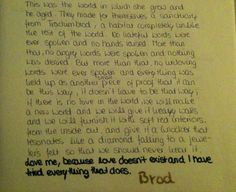 This was the world in which she grew and
he aged. They made for themselves a sanctuary
from Trachimbrod, a habitat completely unlike
the rest of the world. No hateful words were
ever spoken and no hands raised. More than
that, no angry words were spoken and nothing
was denied. But more than that, no unloving
words were ever spoken and everything was
held up as another piece of proof that it can
be this way, it doesn't have to be that way;
if there is no love in the world we will make
a new world and we will give it heavy walls
and we will furnish it with soft red interiors,
from the inside out, and give it a knocker that
resonates like a diamond falling to a jewe-
ler's felt so that we should never hear it.
Love me, because love doesn't exist and I have
tried everything that does. Brod